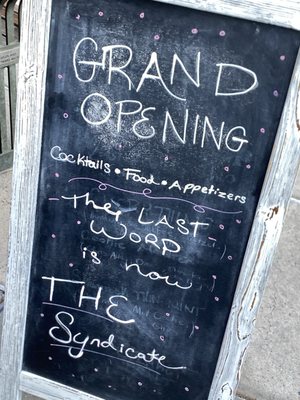 GRAND
OPENING
Cocktails • Food • Appetizers
The LAST
WORD
is now
THE
Syndicate